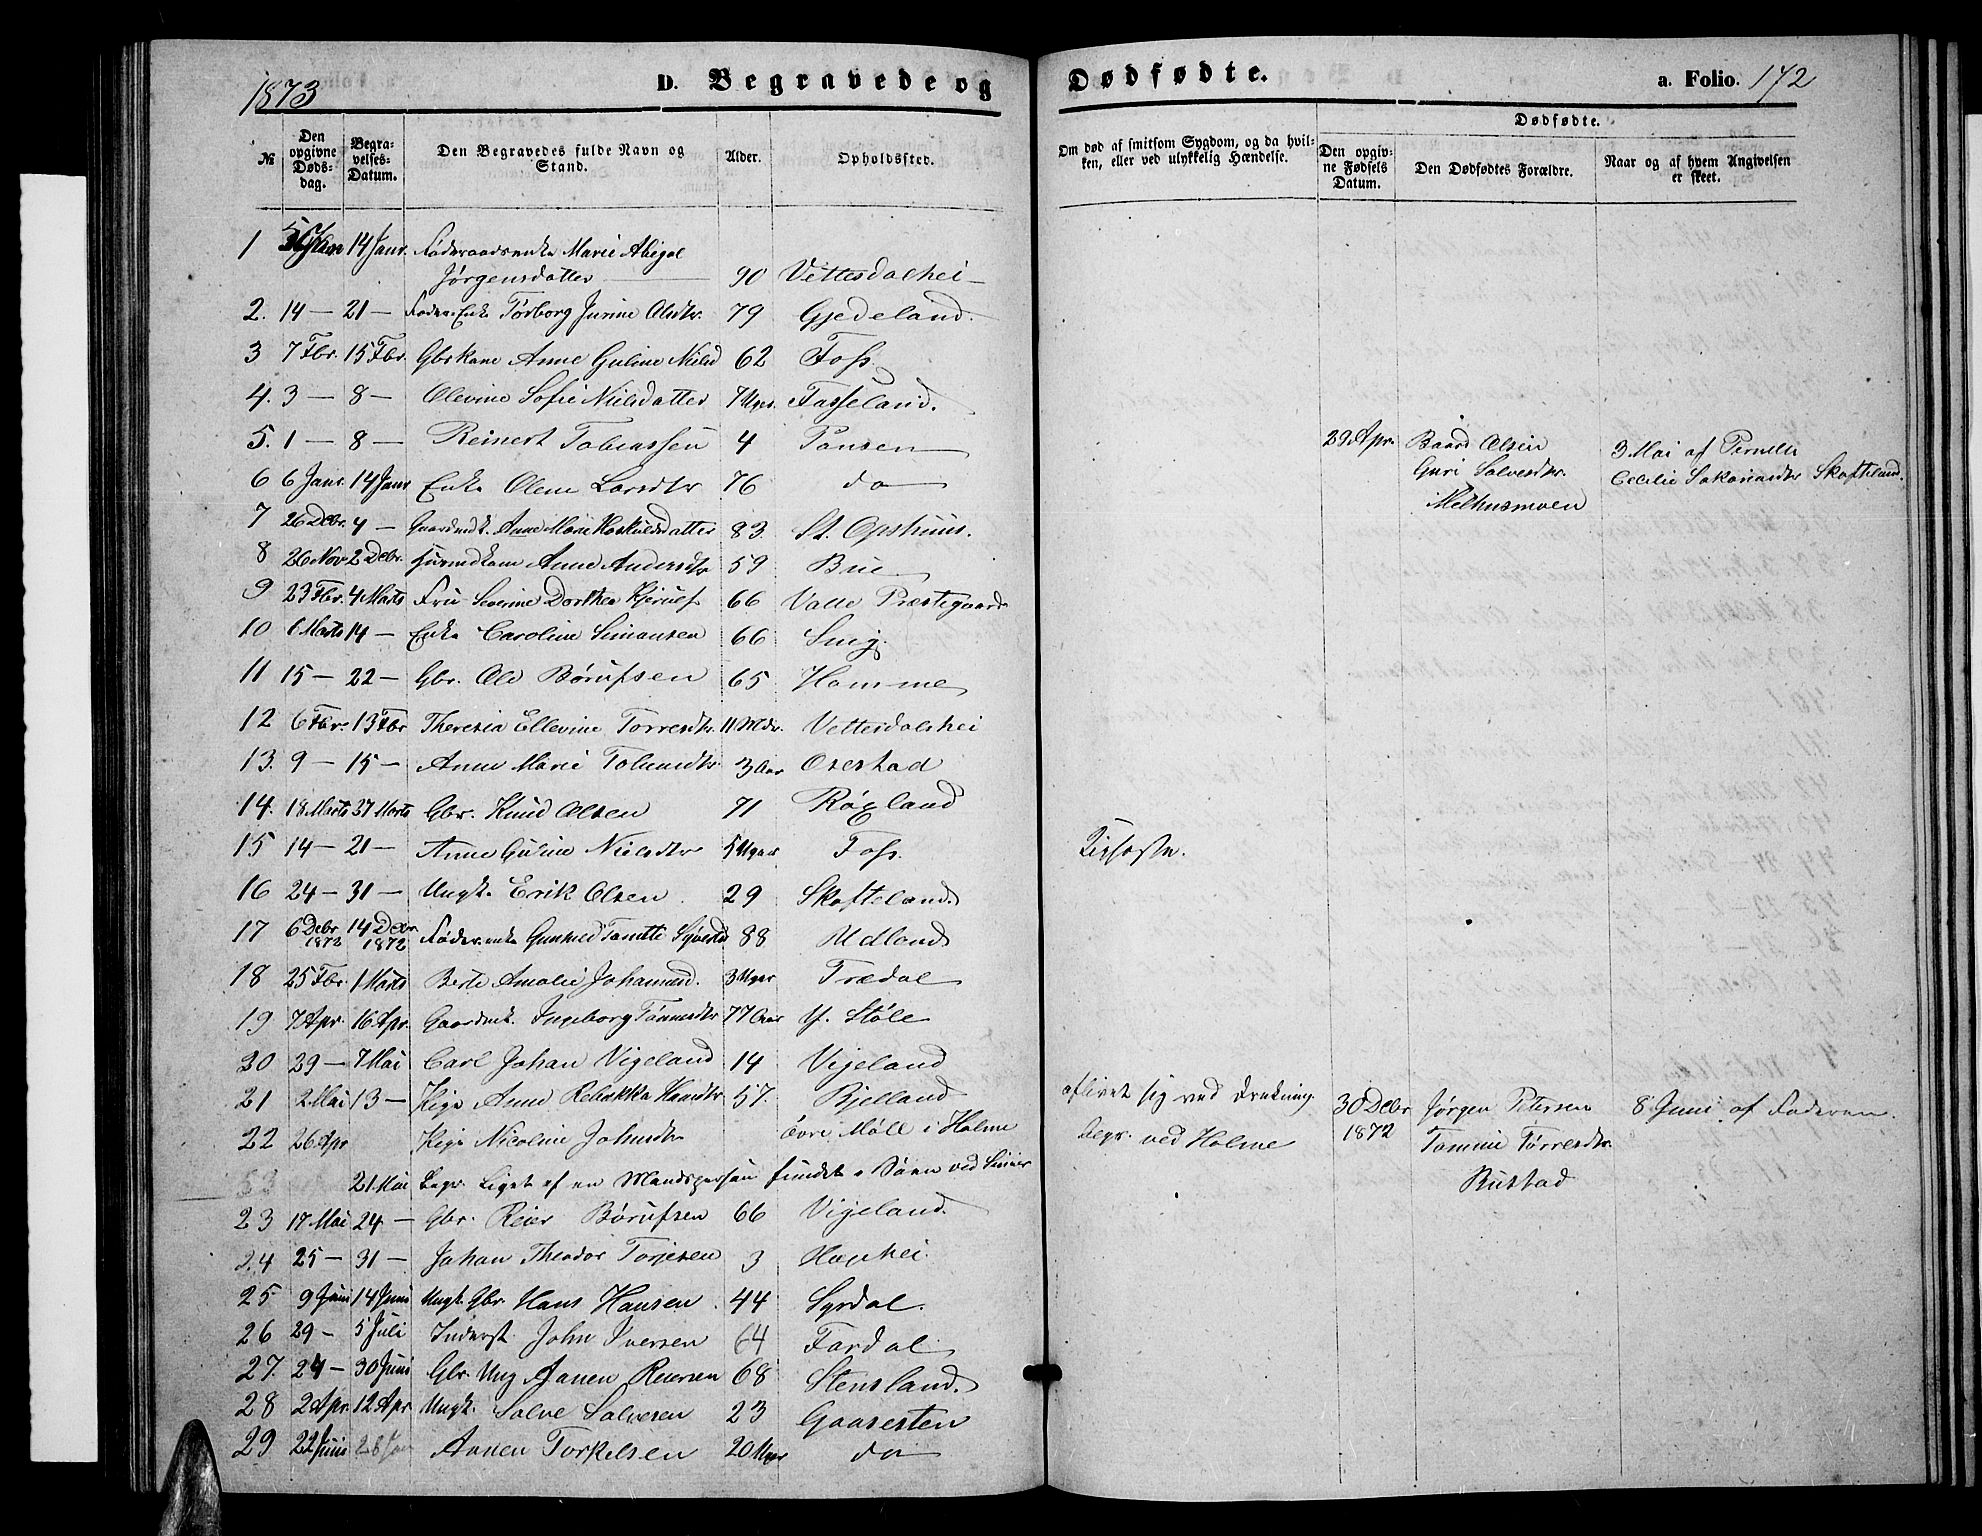 1873
D. Begravede og Dødfødte.
a. Folio. 172
№ Den opgivne Dødsdag. Begravelses-Datum. Den Begravedes fulde Navn og Stand. Alder. Opholdssted. Om død af smitsom Sygdom, og da hvilken, eller ved ulykkelig Hændelse. Dødfødte. Den opgivne Fødsels Datum. Den Dødfødtes Forældre. Naar og af hvem Angivelsen er skeet.
1 5 Janr 14 Janr. Føderaadsenke Marie Abigal
Jørgensdatter 90 Vettesdalhei
2. 14 — 21 — Føder. Enke Torborg Jurine Olsdtr. 79 Gjedeland.
3 7 Fbr. 15 Fbr. Gbrkone Anne Guline Nielsd 62 Foss.
4. 3 — 8 — Olevine Sofie Nielsdatter 7 Uger. Fasseland.
5. 1 — 8 — Reinert Tobiassen 4 Tånsen
6 6 Janr. 14 Janr Enke Olene Larsdtr 76 do
7 26 Debr. 4 — Gaardmdk. Anne Marie Hoskuldsdatter 83. St. Opshuus.
8 26 Nov 2 Debr. Huusmdkone Anne Andersdtr 59 Brie
9 23 Fbr. 4 Marts Fru Severine Dorthea Kjerulf 66 Valle Præstegaard
10 6 Marts 14 — Enke Caroline Simonsen 66 Snig
11 15 — 22 — Gbr. Ole Børufsen 65 Homme
12 6 Fbr. 13 Fbr Theresia Ellevine Torresdtr. 11 Mdr. Vettesdalshei
13. 9 — 15 — Anne Marie Tobiasdtr 3 Aar Oxestad
14. 18 Marts 27 Marts Gbr. Knud Olsen 71 Røxland
15 14 — 21 — Anne Guline Nielsdtr 5 Uger Foss.
16 24 — 31 — Ungk. Erik Olsen 29 Skofteland.
17 6 Debr 1872 14 Debr 1872 Føder.enke Gunned Tomitte Syversd 88 Udland
18 25 Fbr. 1 Marts Berte Amalie Johannesd. 3 Uger Trædal
19 7 Apr. 16 Apr. Gaardmk. Ingeborg Tønnesdtr 77 Aar Y. Støle
20 29 — 7 Mai Carl Johan Vigeland 14 Vigeland
21 2 Mai 13 — Pige Anne Rebekka Hansdtr 57. Bjelland
22 26 Apr Pige Nicoline Johnsdtr övre Møll i Holme
21 Mai Begr. Liget af en Mandsperson fundet i Søen ved
23 17 Mai 24 — Gbr. Reier Børufsen 66 Vigeland.
24 25 — 31 — Johan Theodor Torjesen 3 Haghei.
25 9 Juni 14 Juni Ungk. Gbr. Hans Hansen 44 Syrdal.
26 29 — 5 Juli Inderst. John Iversen 64 Fardal
27. 24 — 30 Juni Gbr. Ung Aanen Reiersen 68 Stensland.
28 2 Apr. 12 Apr Ungk. Salve Salvesen 23 Gaasesten
29 22 Juni 28 Aanen Torkelsen 20 Uger do
29 Apr. Baard Olsen
Guri Salvesdtr.
Melhusmoen
3 Mai af Pernelle
Cecilie Sakariasdtr Skofteland.
aflivet sig ved Drukning.
Begr. ved Holme
30 Debr
1872
Jørgen Petersen
Tomine Tørresdtr.
Bustad
8 Juni af Faderen.